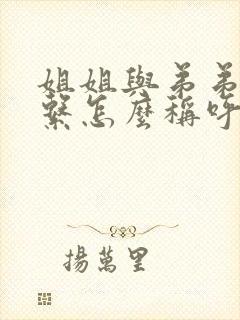 姐姐與弟弟
繫怎麼稱呼
揚萬里